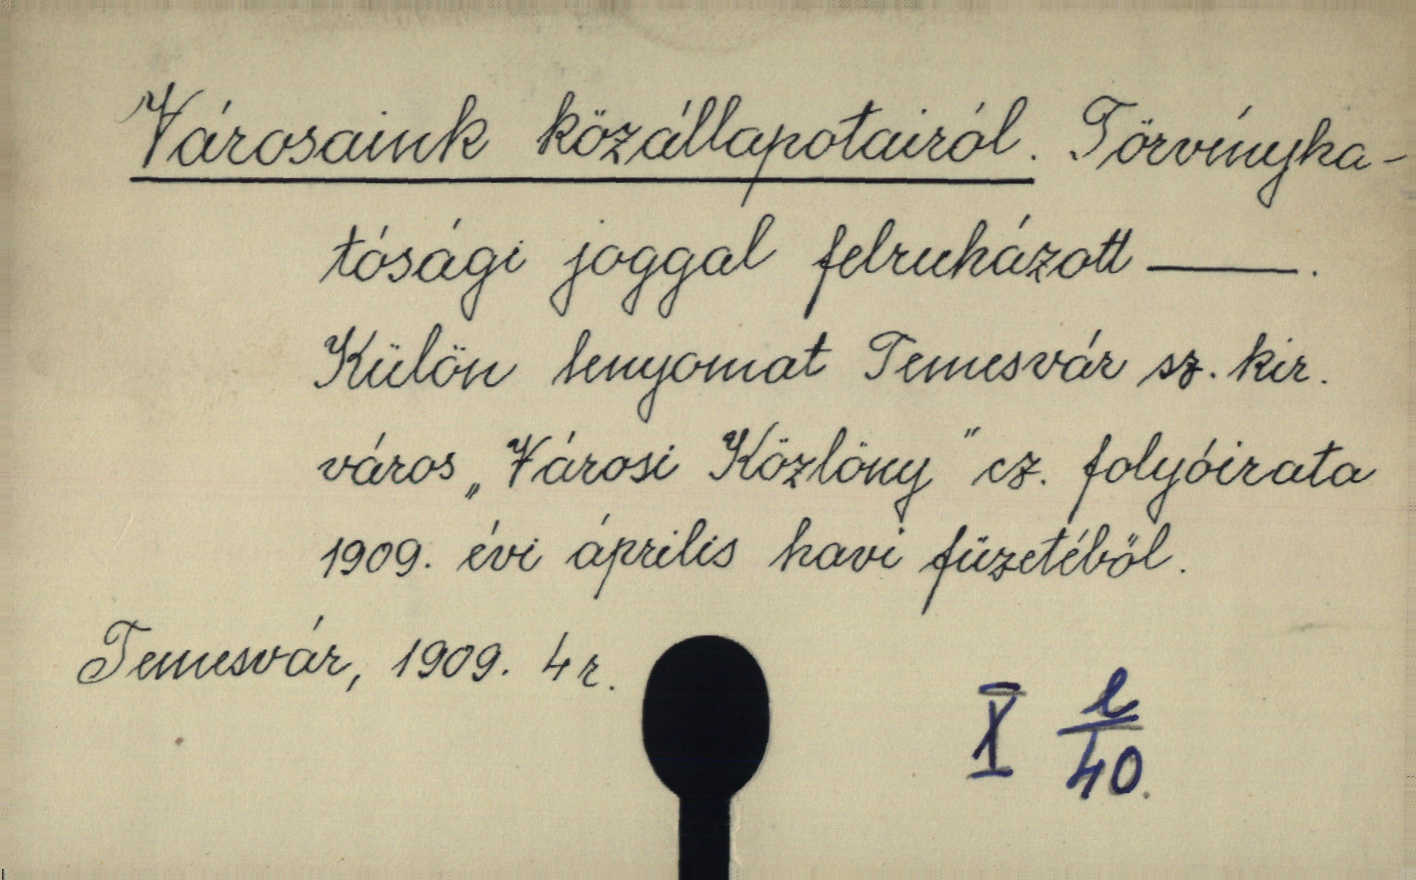 Városaink közállapotairól. Törvényha-
tósági joggal felruházott ———.
Külön lenyomat Temesvár sz. kir.
város „Városi Közlöny" cz. folyóirata
1909. évi április havi füzetéből.
Temesvár, 1909. 4r.
X l/40.